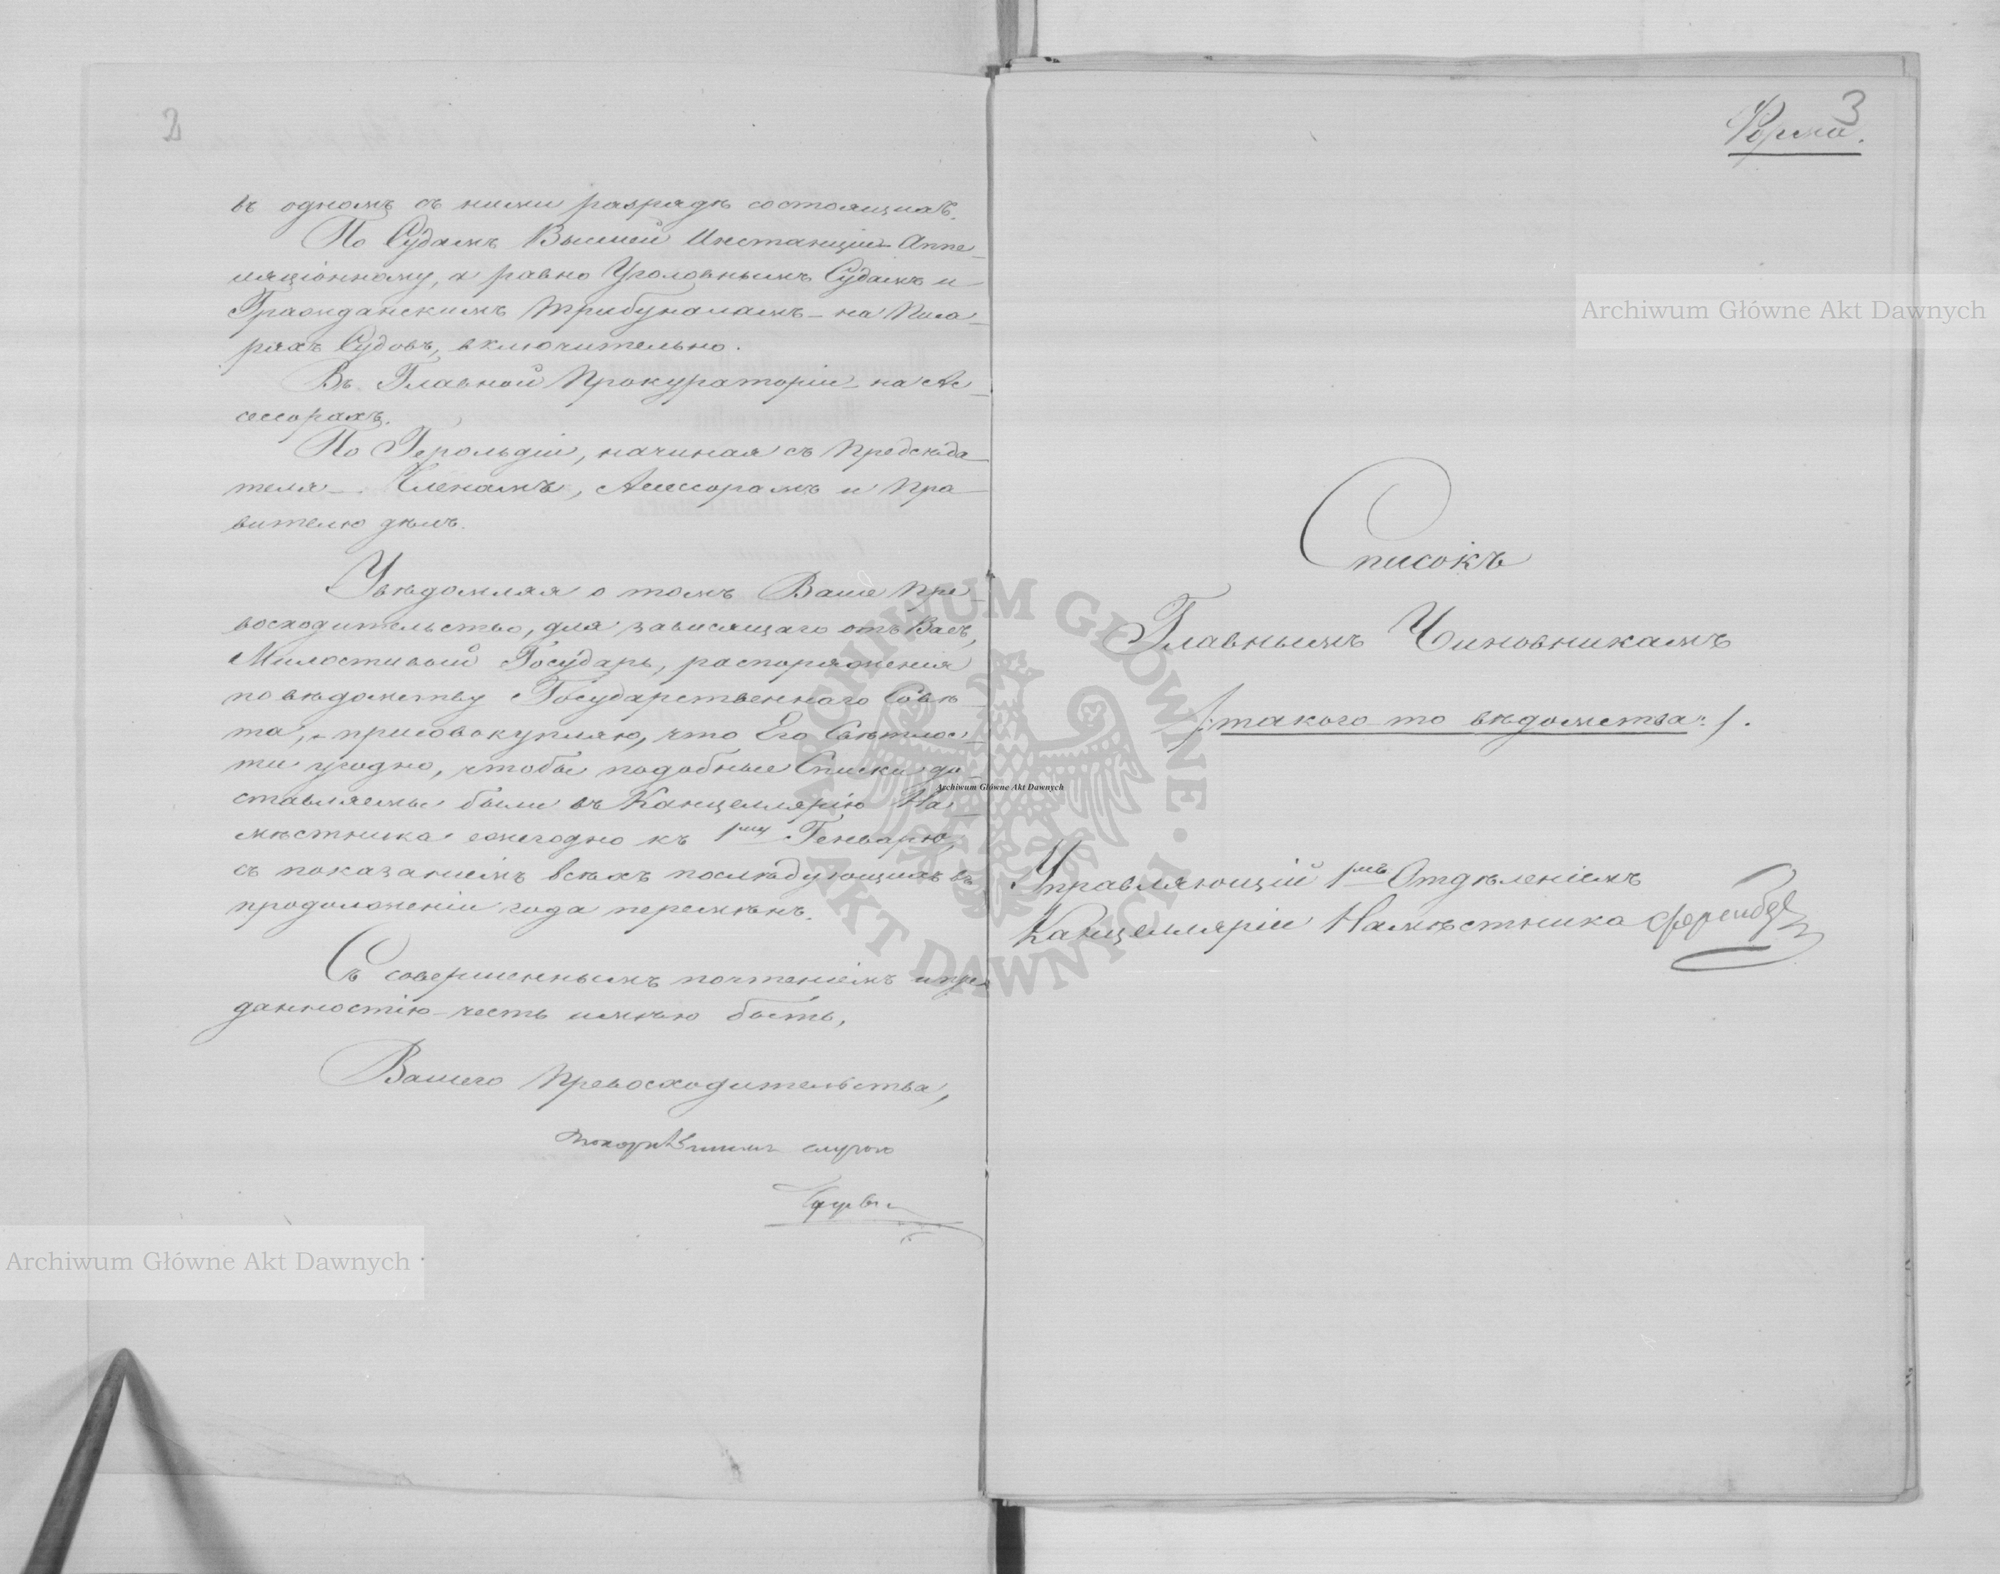 2
въ одномъ съ ними разрядѣ состоящихъ.
По Судамъ Высшей Инстанціи Аппе-
ляціонному, а равно Уголовнымъ Судамъ и
Гражданскимъ Трибуналамъ – на Писа-
ряхъ Судовъ, включительно.
Въ Главной Прокураторіи – на Ас-
сессорахъ.
По Герольдіи, начиная съ Предсѣда-
теля – Членамъ, Ассессорамъ и Пра-
вителю дѣлъ.
Увѣдомляя о томъ Ваше Пре-
восходительство, для зависящаго отъ Васъ,
Милостивый Государь, распоряженія
по вѣдомству Государственнаго Совѣ-
та, – присовокупляю, что Его Свѣтлос-
ти угодно, чтобы подобные Списки до-
ставляемы были въ Канцелярію На-
мѣстника ежегодно къ 1му Генварю,
съ показаніемъ всѣхъ послѣдующихъ въ
продолженіи года перемѣнъ.
Съ совершеннымъ почтеніемъ и пре-
данностію честь имѣю быть,
Вашего Превосходительства,
покорнѣйшимъ слугою
3
Форма.
Списокъ
Главнымъ Чиновникамъ
/: такого то вѣдомства :/.
Управляющій 1мъ Отдѣленіемъ
Канцелляріи Намѣстника
Archiwum Główne Akt Dawnych
Archiwum Główne Akt Dawnych
Archiwum Główne Akt Dawnych
ARCHIWUM GŁÓWNE · AKT DAWNYCH ·